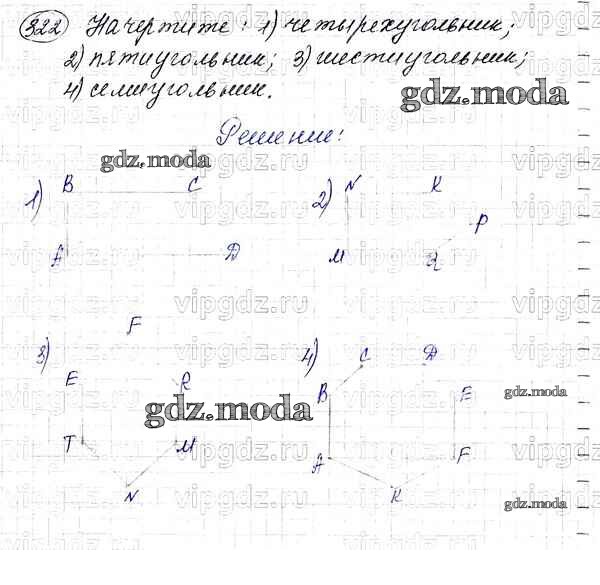 322 Начертите: 1) четырехугольник;
2) пятиугольник; 3) шестиугольник;
4) семиугольник.
gdz.moda
Решение:
gdz.moda
1) B C
2) N K
P
A D
M R
vipgdz.ru vipgdz.ru vipgdz.ru
F
3)
4) C D
E R
B E
gdz.moda
gdz.moda
T M
A F
N
K
gdz.moda